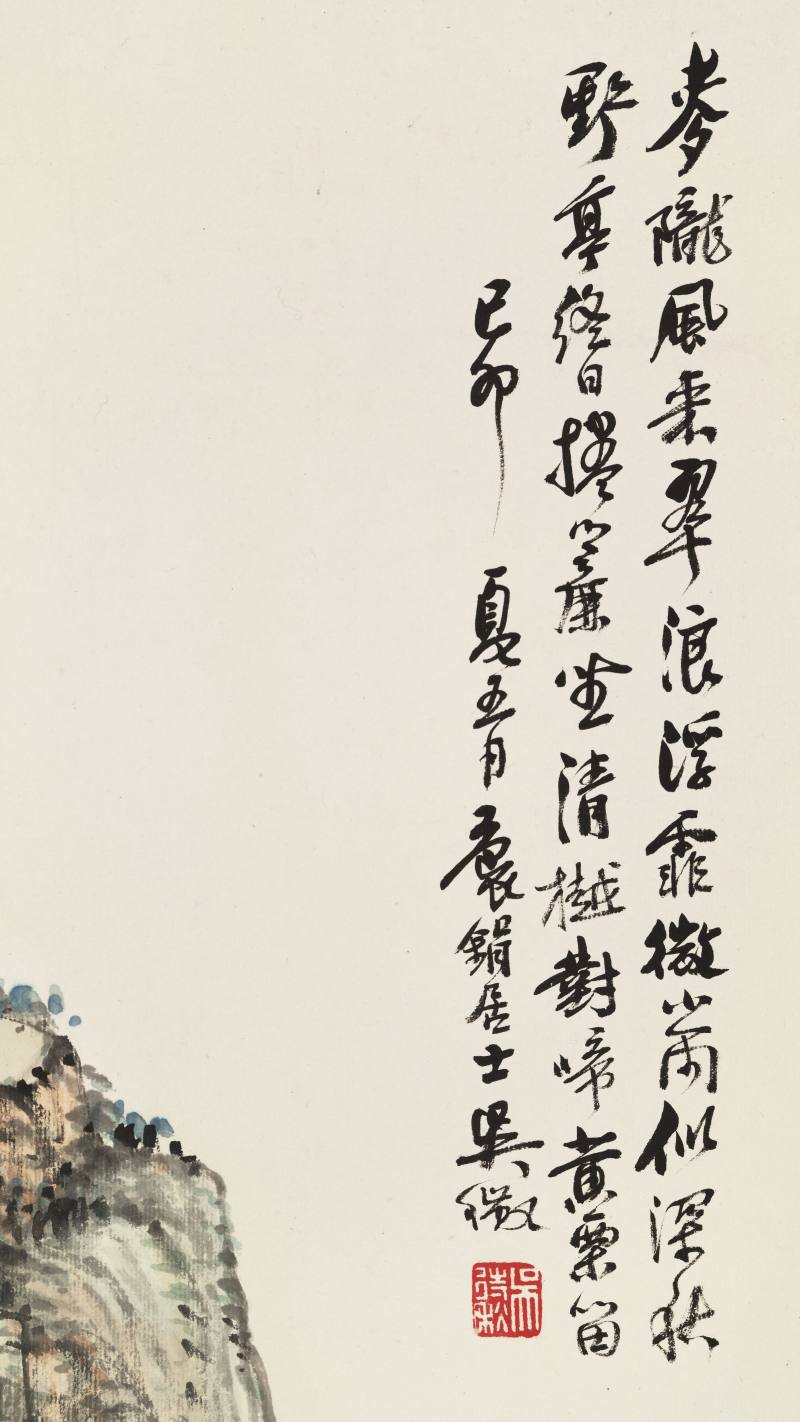 麥隴風來翠浪浮霏微小雨似深秋
野亭終日捲簾坐清樾對啼黃栗留
己卯夏五月袌鋗居士吳徵
吳待秋